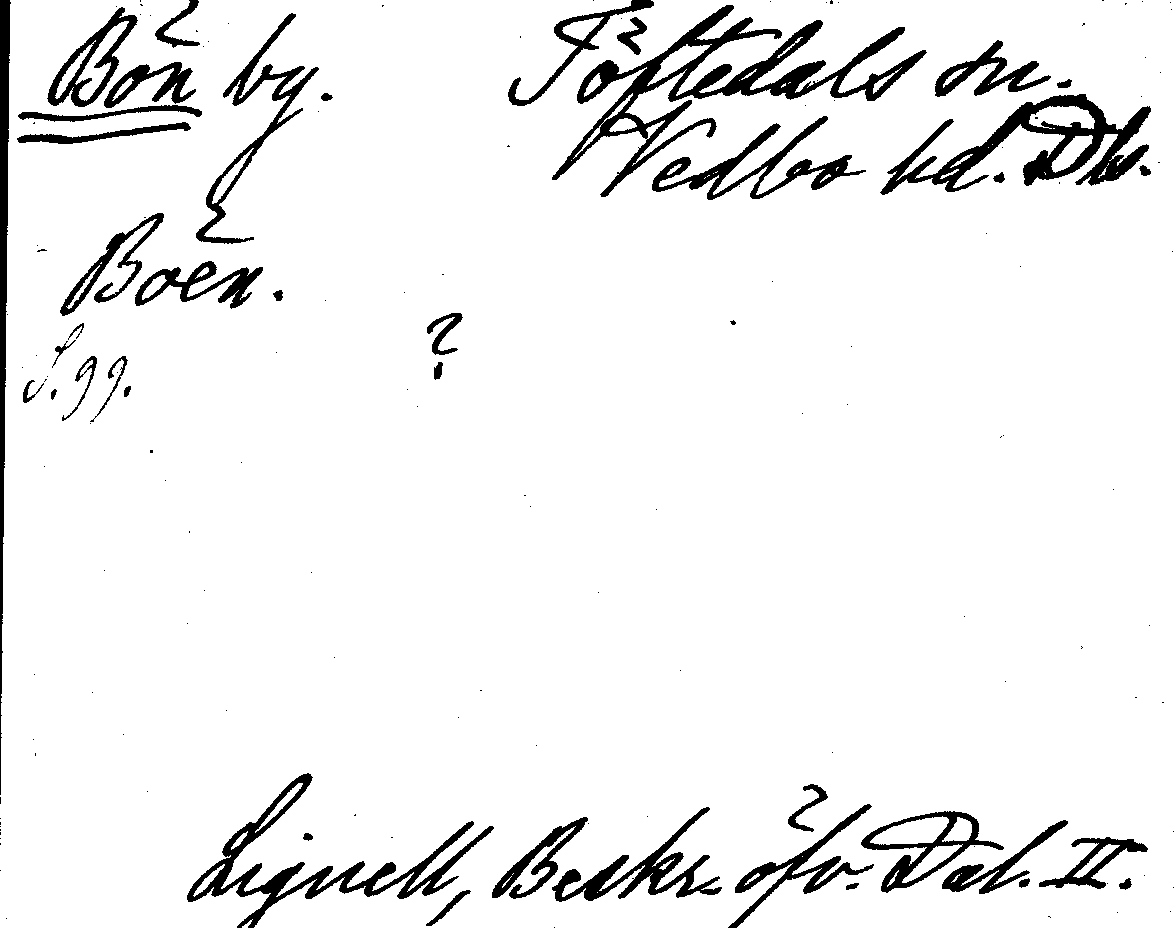 Bön by. Töftedals sn.
Vedbo hd. Dls.
Böen.
S. 99.
?
Lignell, Beskr. öfv. Dal. II.